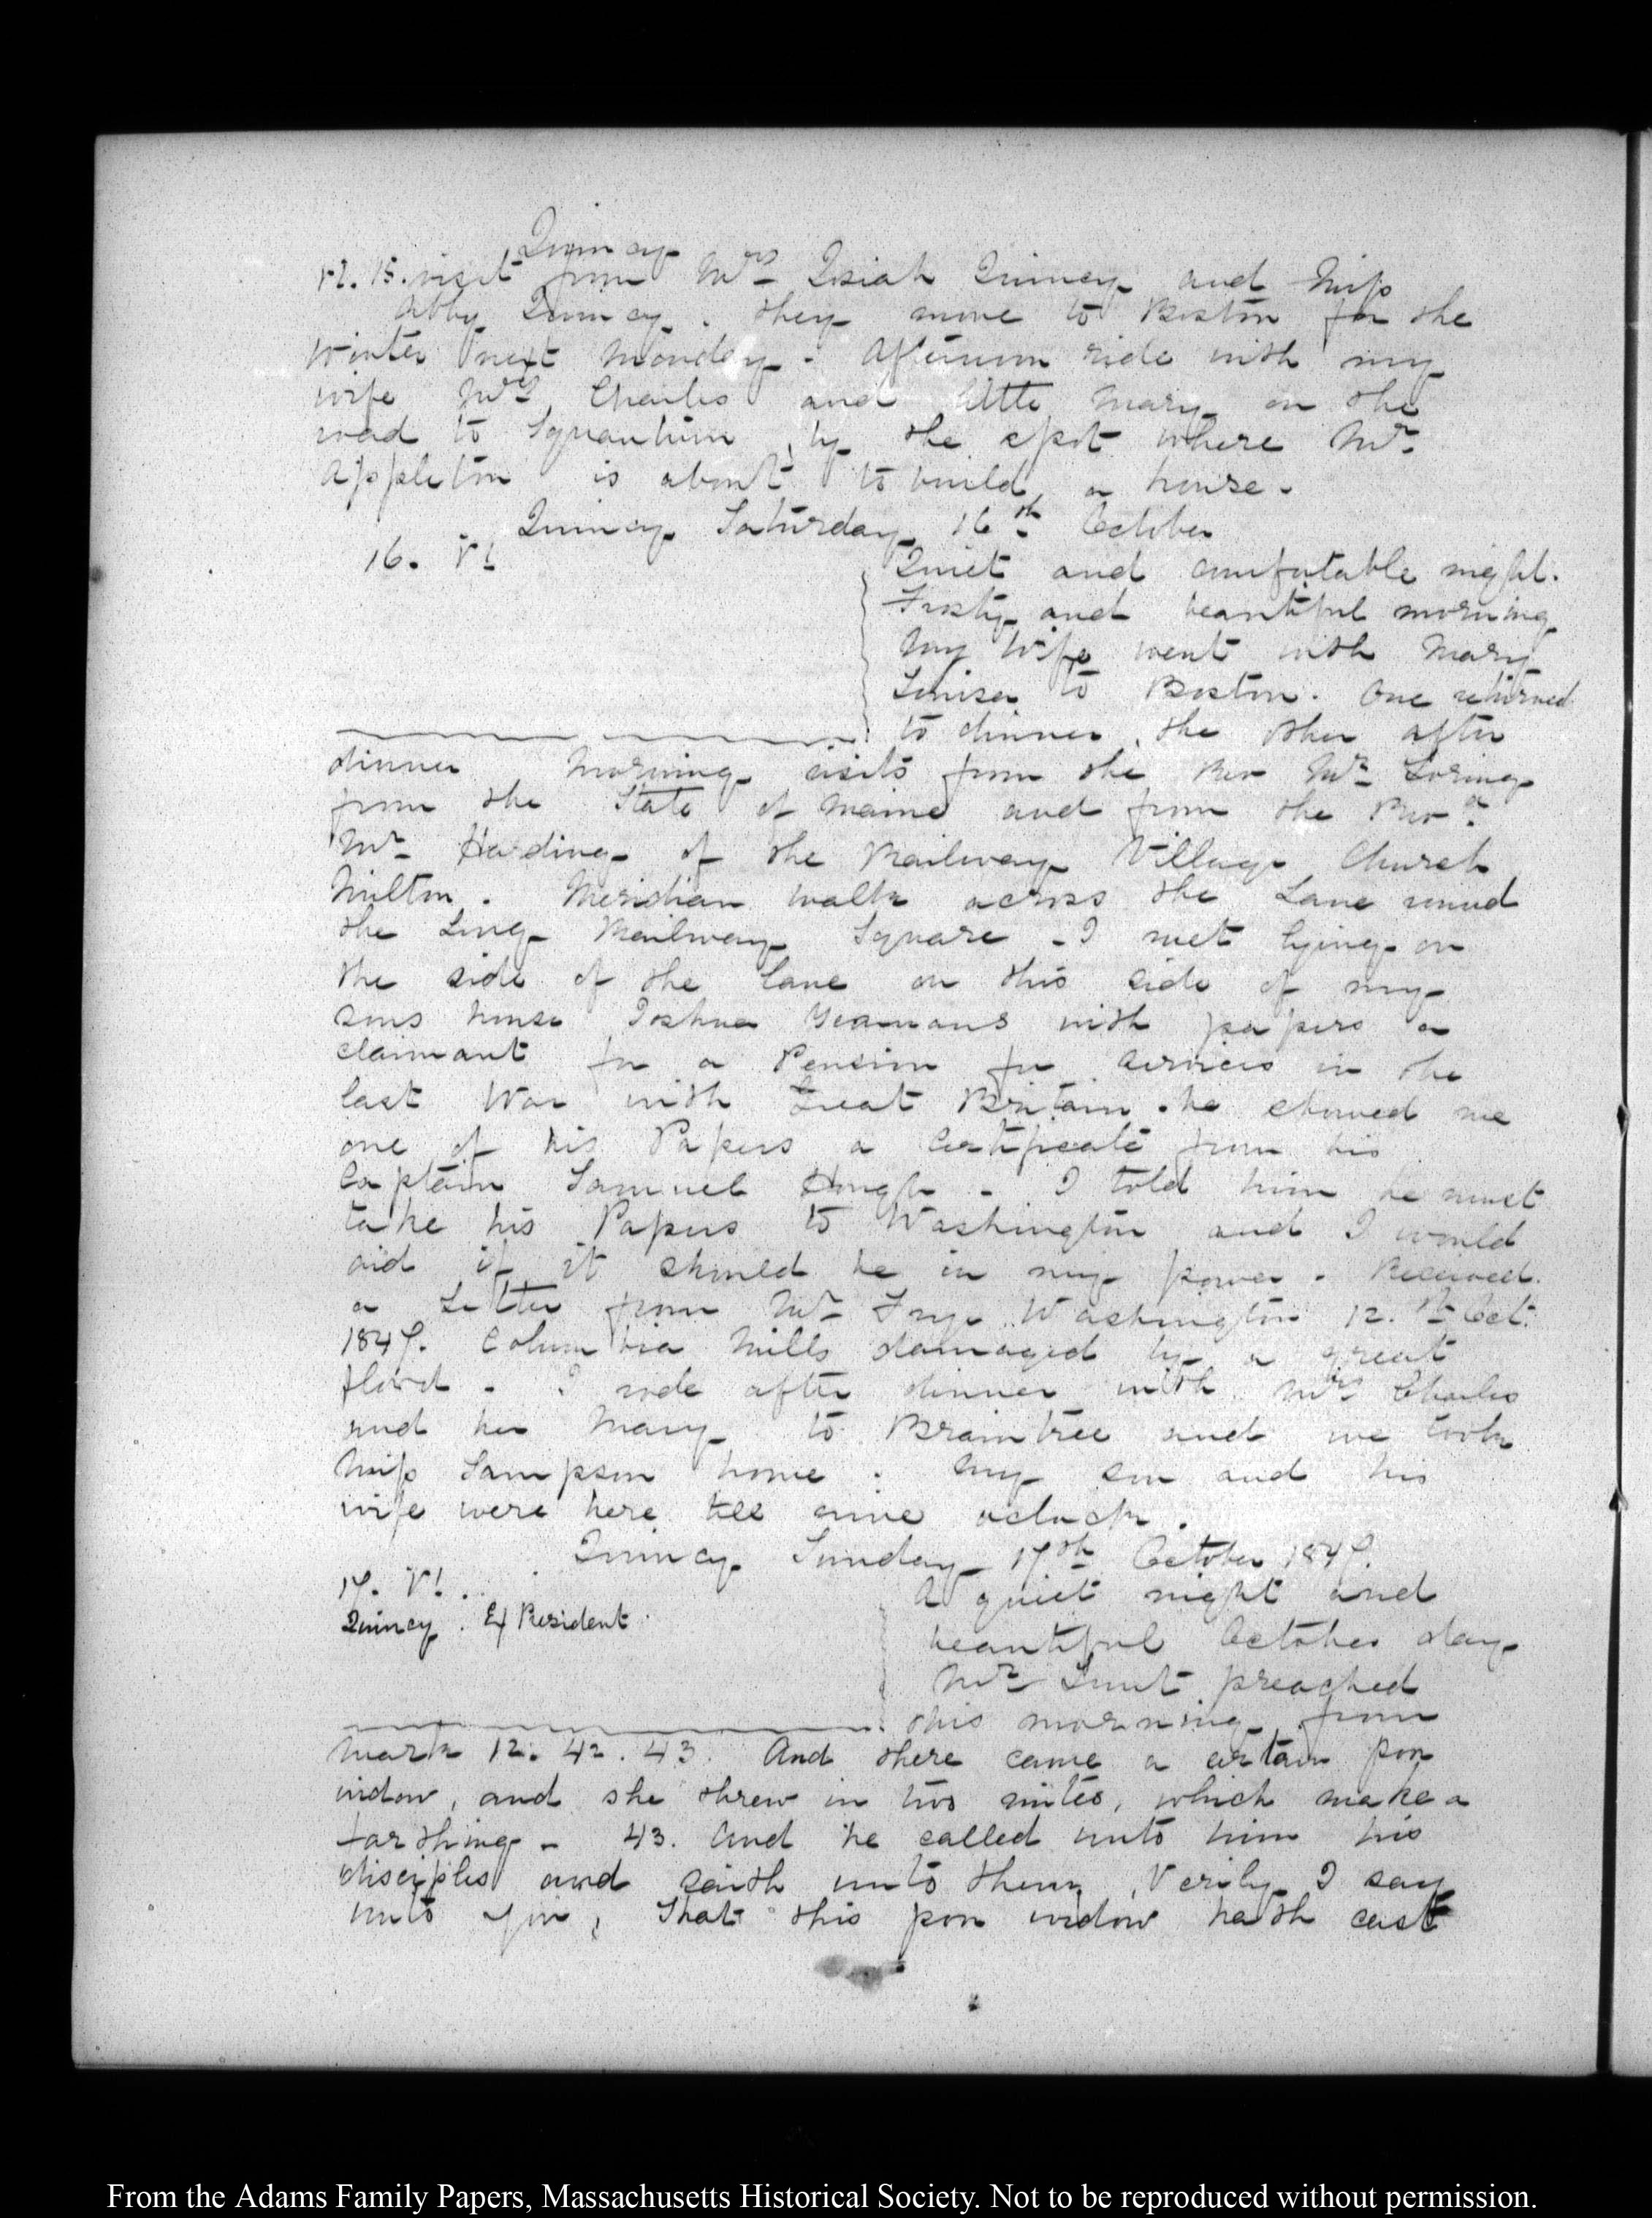 Quincy
VI. 15. visit from Mrs Josiah Quincy and Miss
Abby Quincy. They move to Boston for the
Winter next Monday. Afternoon ride with my
wife Mrs Charles and little Mary on the
road to Squantum, by the spot where Mr
Appleton is about to build a house.
Quincy Saturday 16th October
16. VI.
Quiet and comfortable night.
Frosty and beautiful morning
My wife went with Mary
Louisa to Boston. One returned
to dinner, the other after
dinner Morning visits from the Rev Mr Loring
from the State of Maine and from the Revd
Mr Harding of the Railway Village Church
Milton. Meridian walk across the Lane round
the Long Railway Square - I met lying on
the side of the lane on this side of my
sons house Joshua Yeamans with papers a
claimant for a Pension for services in the
last War with Great Britain. he showed me
one of his Papers a Certificate from his
Captain Samuel Hough - I told him he must
take his Papers to Washington and I would
aid if it should be in my power. Received
a Letter from Mr Frye Washington 12.th Oct.
1847. Columbia Mills damaged by a great
flood - I rode after dinner with Mrs Charles
and her Mary to Braintree and we took
Miss Sampson home. My son and his
wife were here till nine oclock.
Quincy Sunday 17th October 1847.
17. VI.
Quincy. Ex President
A quiet night and
beautiful October day
Mr Lunt preached
this morning from
Mark 12. 42. 43. And there came a certain poor
widow, and she threw in two mites, which make a
farthing - 43. And he called unto him his
disciples and saith unto them, Verily I say
unto you, That this poor widow hath cast
From the Adams Family Papers, Massachusetts Historical Society. Not to be reproduced without permission.